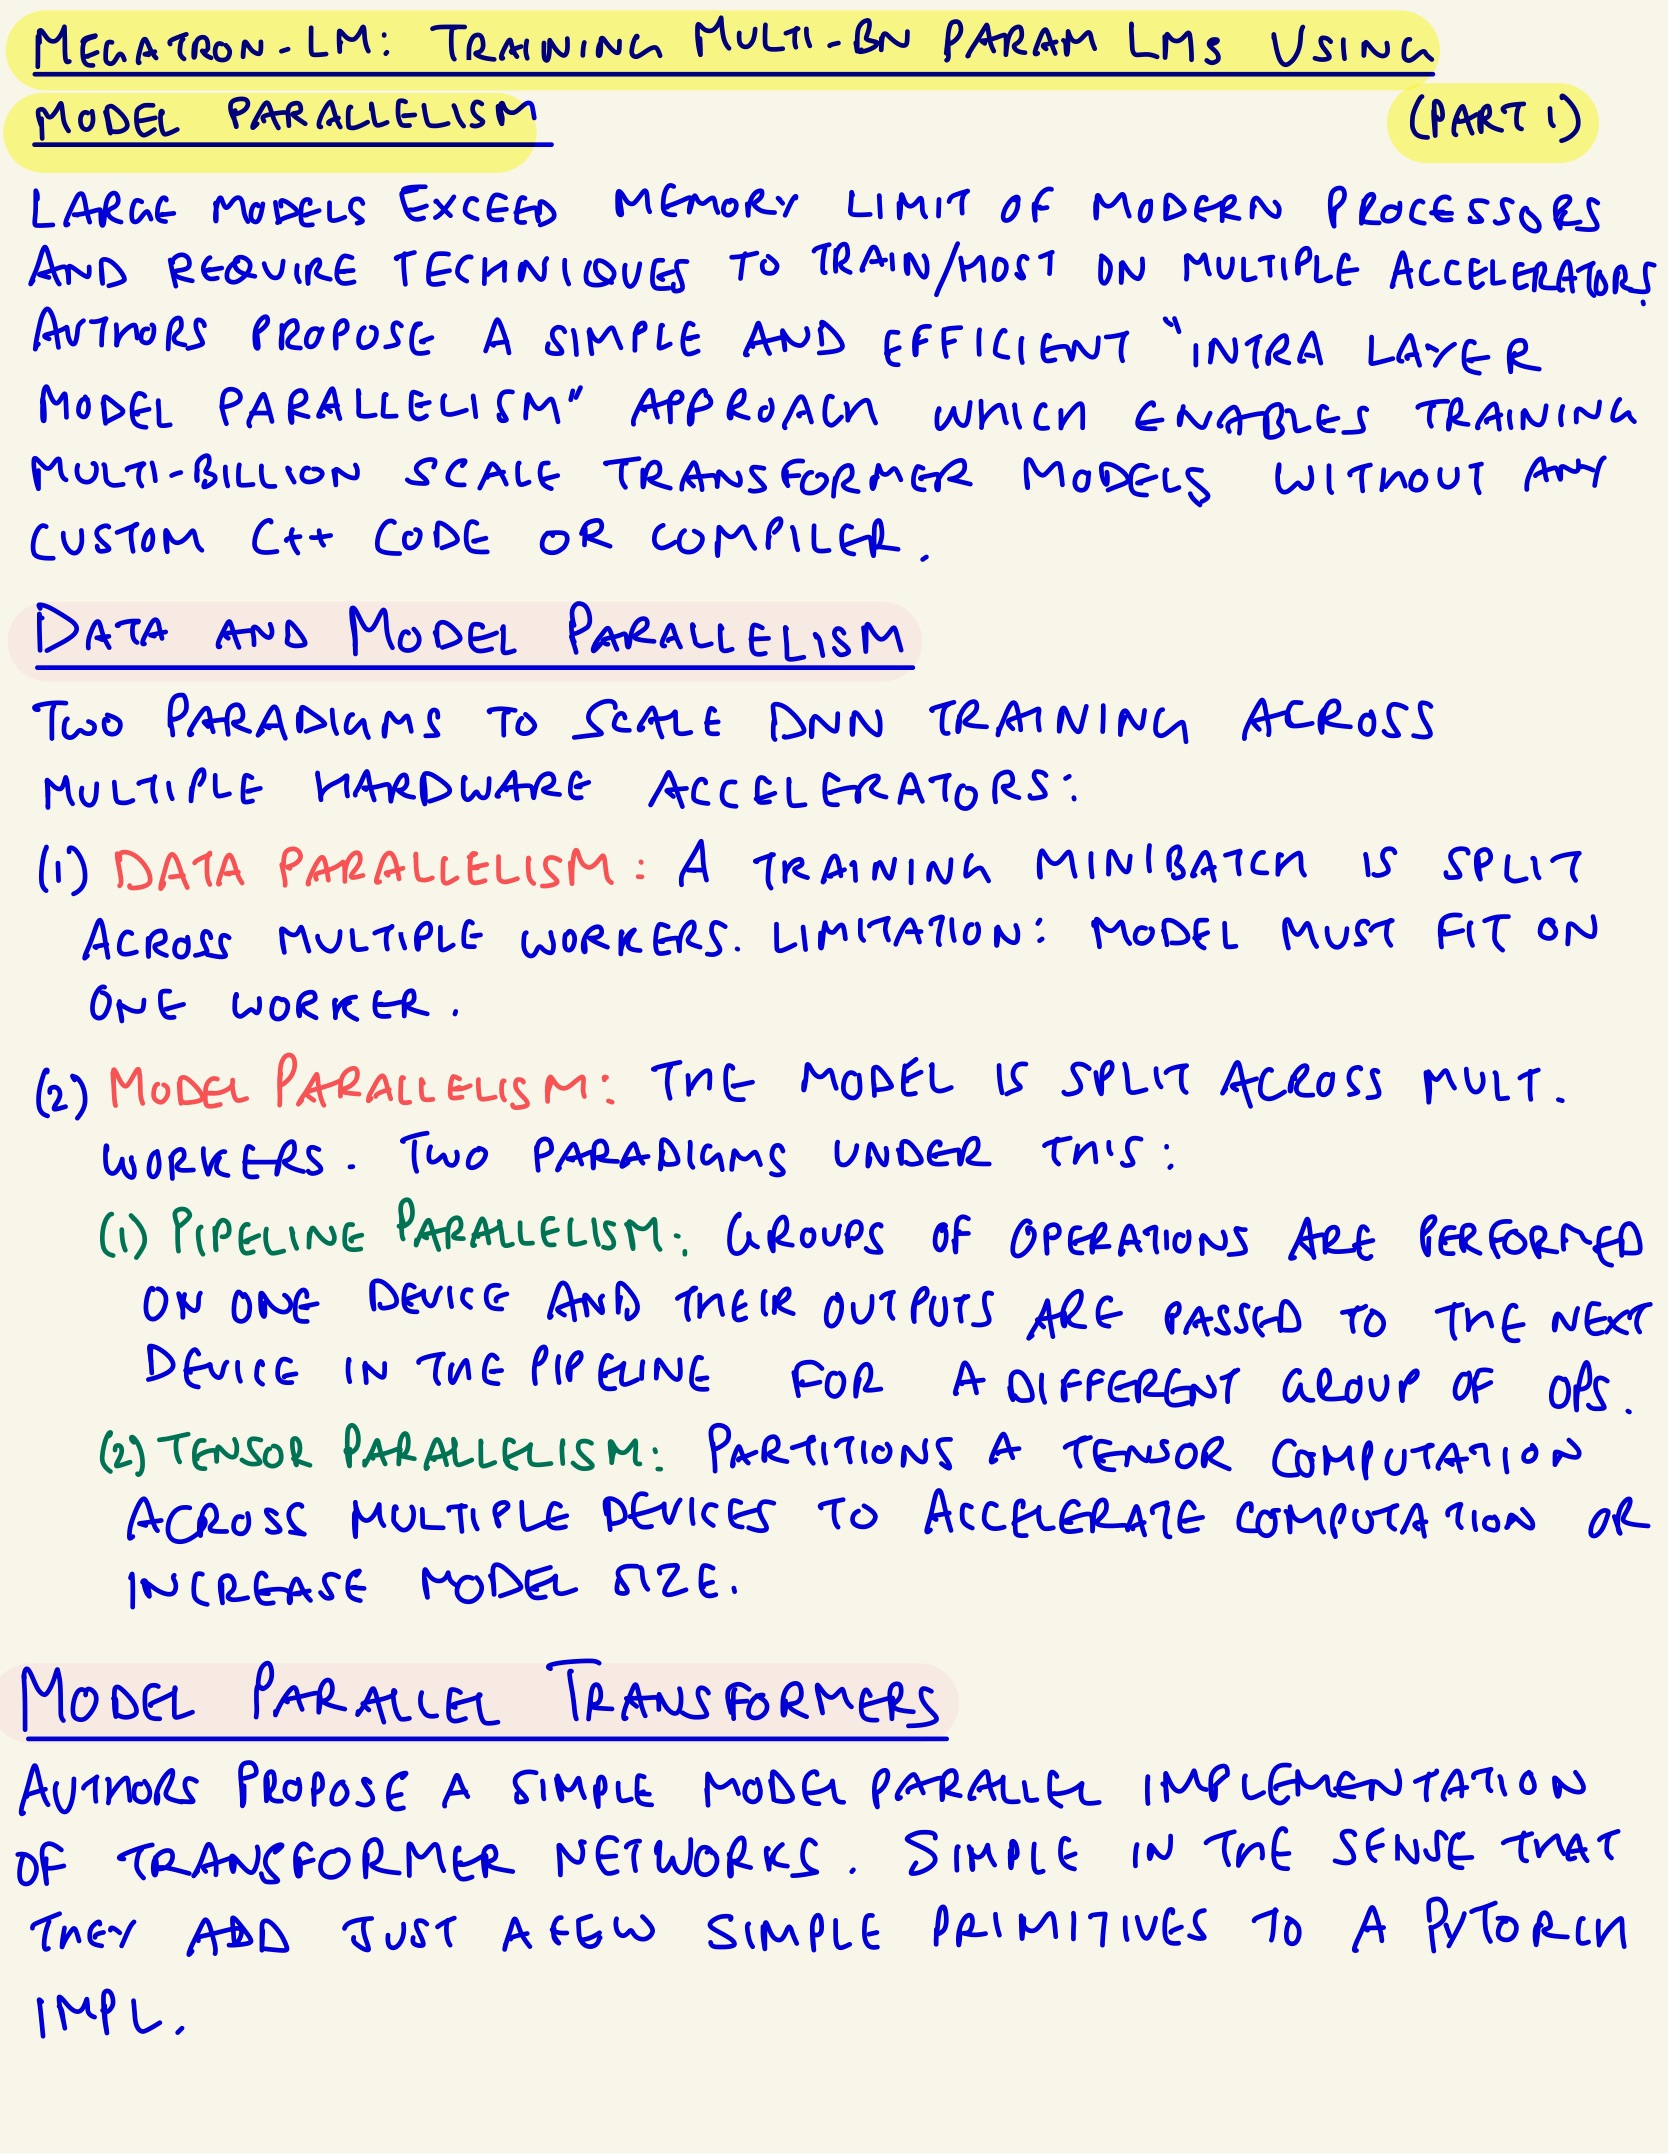 MEGATRON-LM: TRAINING MULTI-BN PARAM LMs USING
MODEL PARALLELISM (PART 1)
LARGE MODELS EXCEED MEMORY LIMIT OF MODERN PROCESSORS
AND REQUIRE TECHNIQUES TO TRAIN/HOST ON MULTIPLE ACCELERATORS.
AUTHORS PROPOSE A SIMPLE AND EFFICIENT "INTRA LAYER
MODEL PARALLELISM" APPROACH WHICH ENABLES TRAINING
MULTI-BILLION SCALE TRANSFORMER MODELS WITHOUT ANY
CUSTOM C++ CODE OR COMPILER.
DATA AND MODEL PARALLELISM
TWO PARADIGMS TO SCALE DNN TRAINING ACROSS
MULTIPLE HARDWARE ACCELERATORS:
(1) DATA PARALLELISM: A TRAINING MINIBATCH IS SPLIT
ACROSS MULTIPLE WORKERS. LIMITATION: MODEL MUST FIT ON
ONE WORKER.
(2) MODEL PARALLELISM: THE MODEL IS SPLIT ACROSS MULT.
WORKERS. TWO PARADIGMS UNDER THIS:
(1) PIPELINE PARALLELISM: GROUPS OF OPERATIONS ARE PERFORMED
ON ONE DEVICE AND THEIR OUTPUTS ARE PASSED TO THE NEXT
DEVICE IN THE PIPELINE FOR A DIFFERENT GROUP OF OPS.
(2) TENSOR PARALLELISM: PARTITIONS A TENSOR COMPUTATION
ACROSS MULTIPLE DEVICES TO ACCELERATE COMPUTATION OR
INCREASE MODEL SIZE.
MODEL PARALLEL TRANSFORMERS
AUTHORS PROPOSE A SIMPLE MODEL PARALLEL IMPLEMENTATION
OF TRANSFORMER NETWORKS. SIMPLE IN THE SENSE THAT
THEY ADD JUST A FEW SIMPLE PRIMITIVES TO A PYTORCH
IMPL.